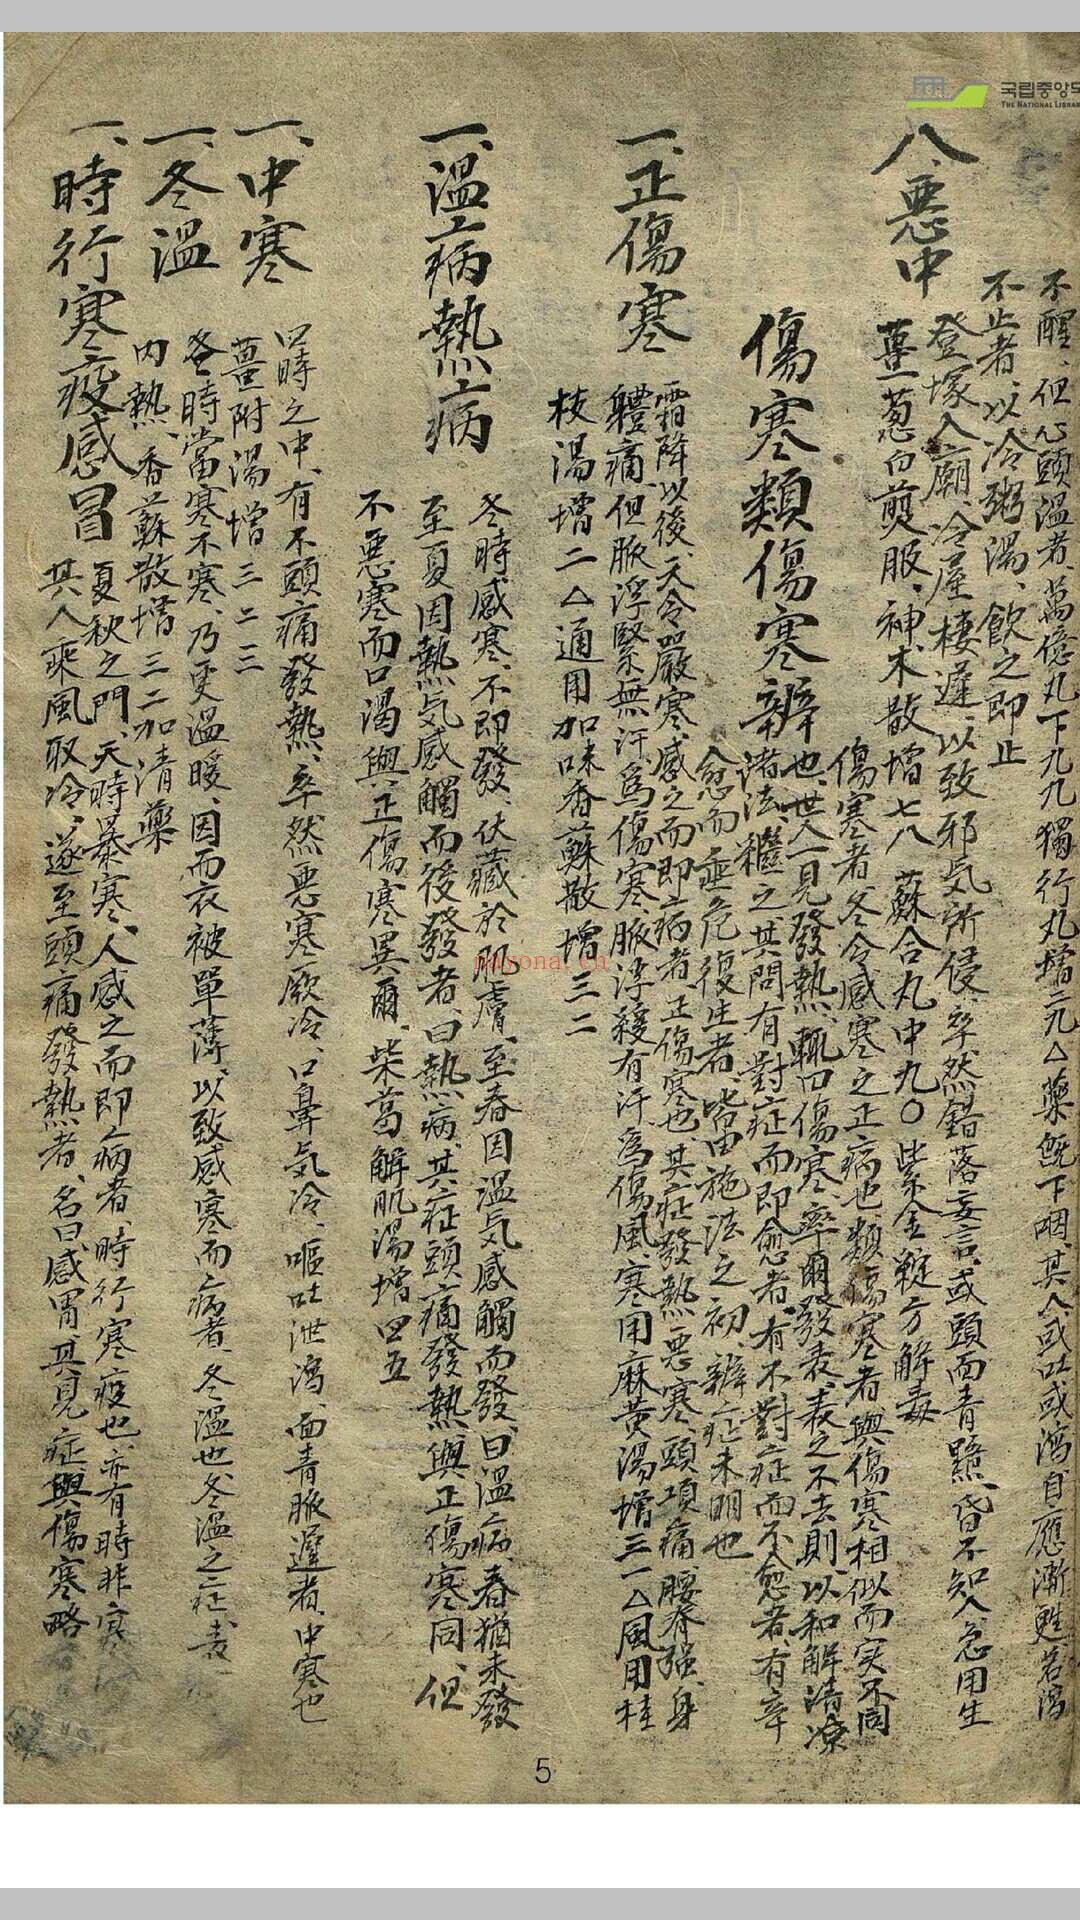 국립중앙도
THE NATIONAL LIBRAR
不醒、但心頭溫者、萬億丸下九九獨行丸增三九△藥旣下咽、其人或吐或瀉、自應漸甦、若瀉
不止者、以冷粥湯、飮之卽止
八、惡中
登塚入廟、冷屋棲遲、以致邪气所侵、卒然錯落妄言、或頭面青黯、昏不知人、急用生
薑葱白煎服、神朮散增七八 蘇合丸中九〇 紫金錠方解毒
傷寒類傷寒辨
傷寒者、冬令感寒之正病也、類傷寒者、與傷寒相似而実不同
也、世人一見發熱、輒曰傷寒、率爾發表、表之不去、則以和解淸凉
諸法、繼之、其間有對症而卽愈者、有不對症而不愈者、有幸
愈而垂危復生者、皆由施法之初 辨症未明也
一、正傷寒
霜降以後、天令嚴寒、感之而卽病者、正傷寒也、其症發熱惡寒、頭項痛、腰脊强、身
軆痛、但脈浮緊無汗、爲傷寒、脈浮緩有汗、爲傷風、寒用麻黃湯增三一△風用桂
枝湯增二△通用加味香蘇散增三二
一、溫病熱病
冬時感寒、不卽發、伏藏於肌膚、至春因溫气感觸而發、曰溫病、春猶未發
至夏因熱气感觸而後發者、曰熱病、其症頭痛發熱、與正傷寒同、但
不惡寒而口渴、與正傷寒異爾、柴葛解肌湯增四五
一、中寒
口時之中、有不頭痛發熱、卒然惡寒厥冷、口鼻气冷、嘔吐泄瀉、面青脈遲者、中寒也
薑附湯增三二三
一、冬溫
冬時當寒不寒、乃更溫暖、因而衣被單薄、以致感寒而病者、冬溫也冬溫之症、表
內熱、香蘇散增三二加淸藥
一、時行寒疫感冒
夏秋之門、天時暴寒、人感之而卽病者、時行寒疫也、亦有時非寒
其人乘風取冷、遂至頭痛發熱者、名曰感冒、其見症與傷寒略
nayona.cn
5